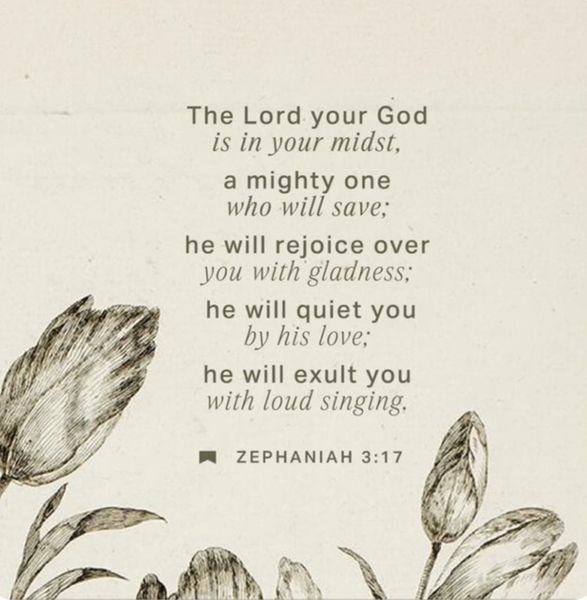 The Lord your God
is in your midst,
a mighty one
who will save;
he will rejoice over
you with gladness;
he will quiet you
by his love;
he will exult you
with loud singing.
ZEPHANIAH 3:17